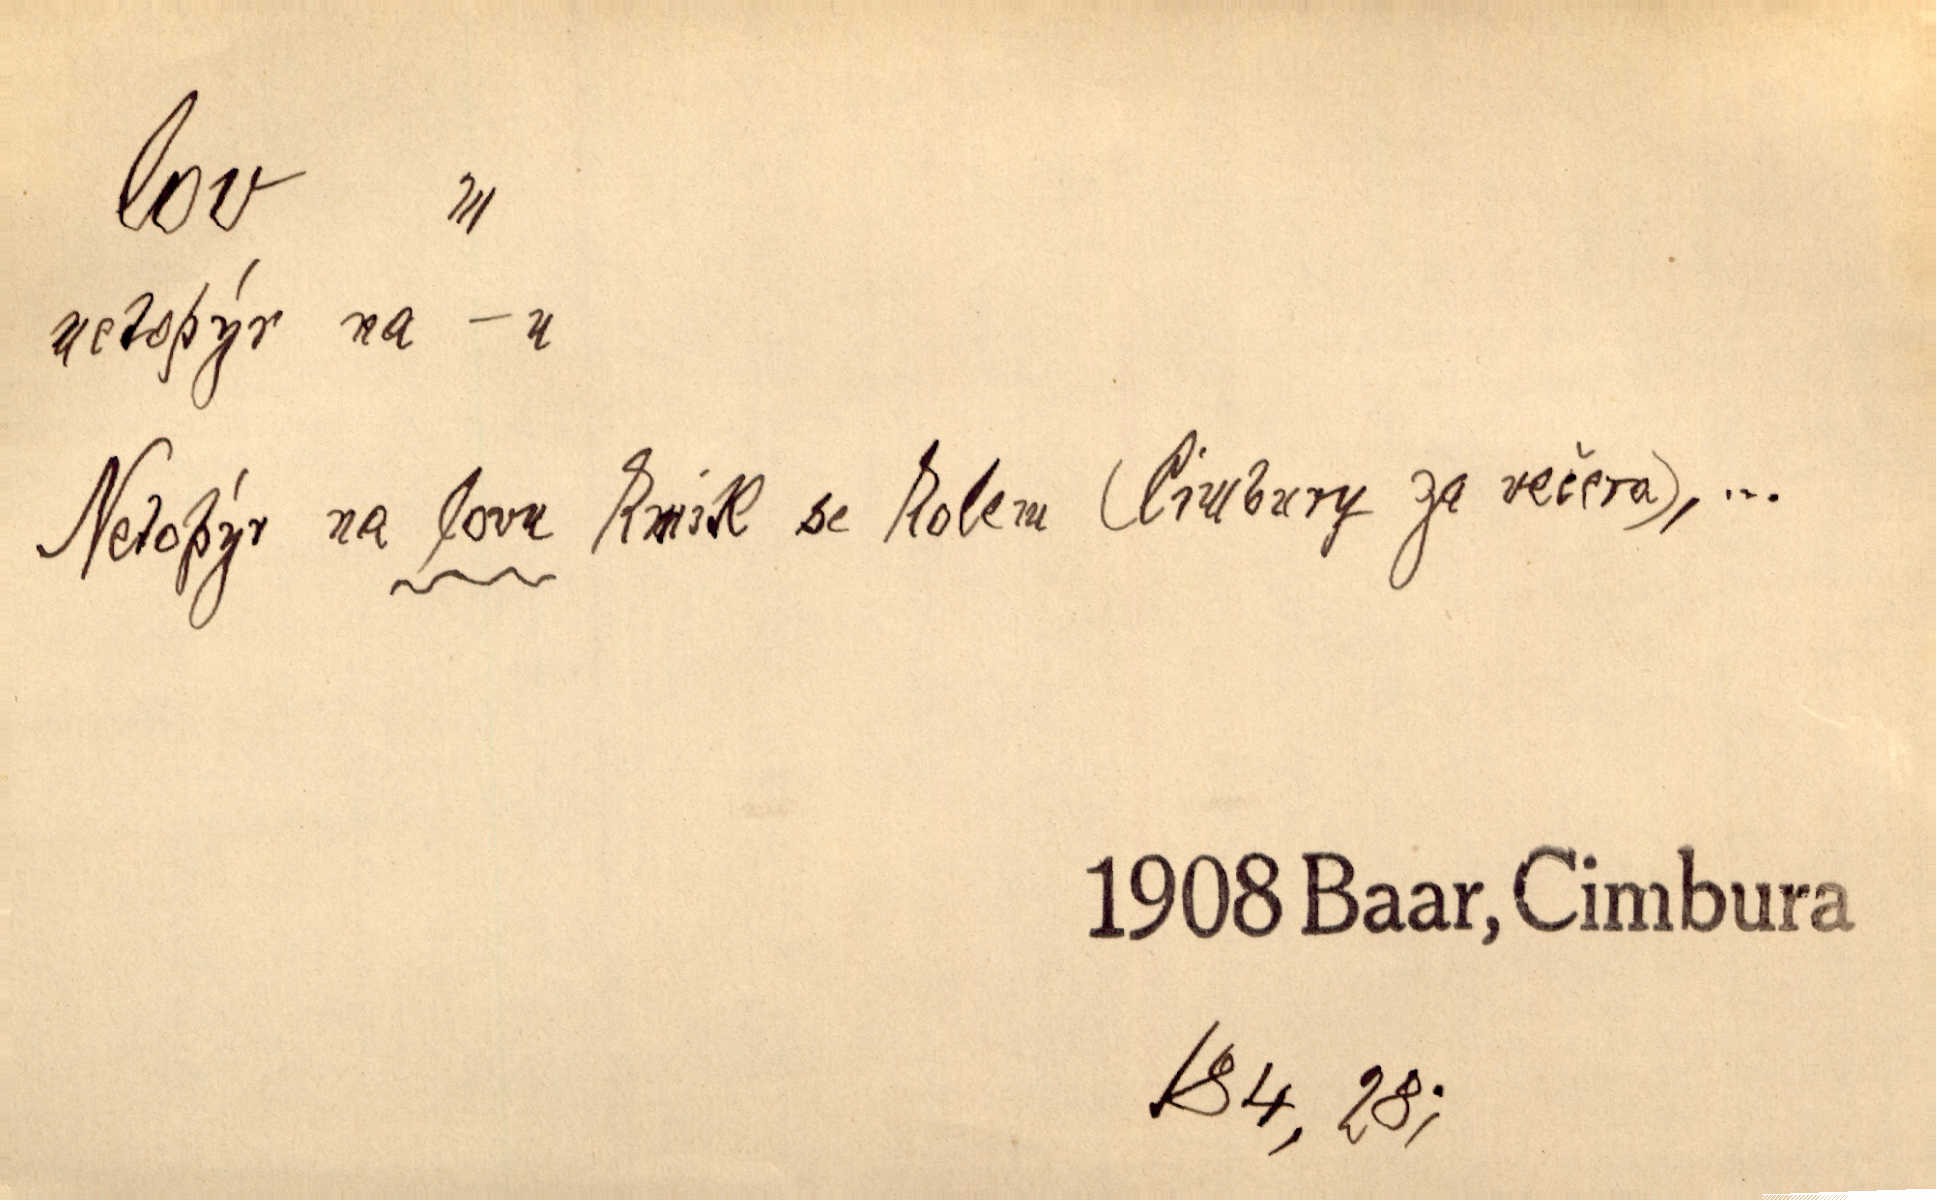 lov m
netopýr na – u
Netopýr na lovu kmik se kolem (Cimbury za večera), ...
1908 Baar, Cimbura
184, 28;